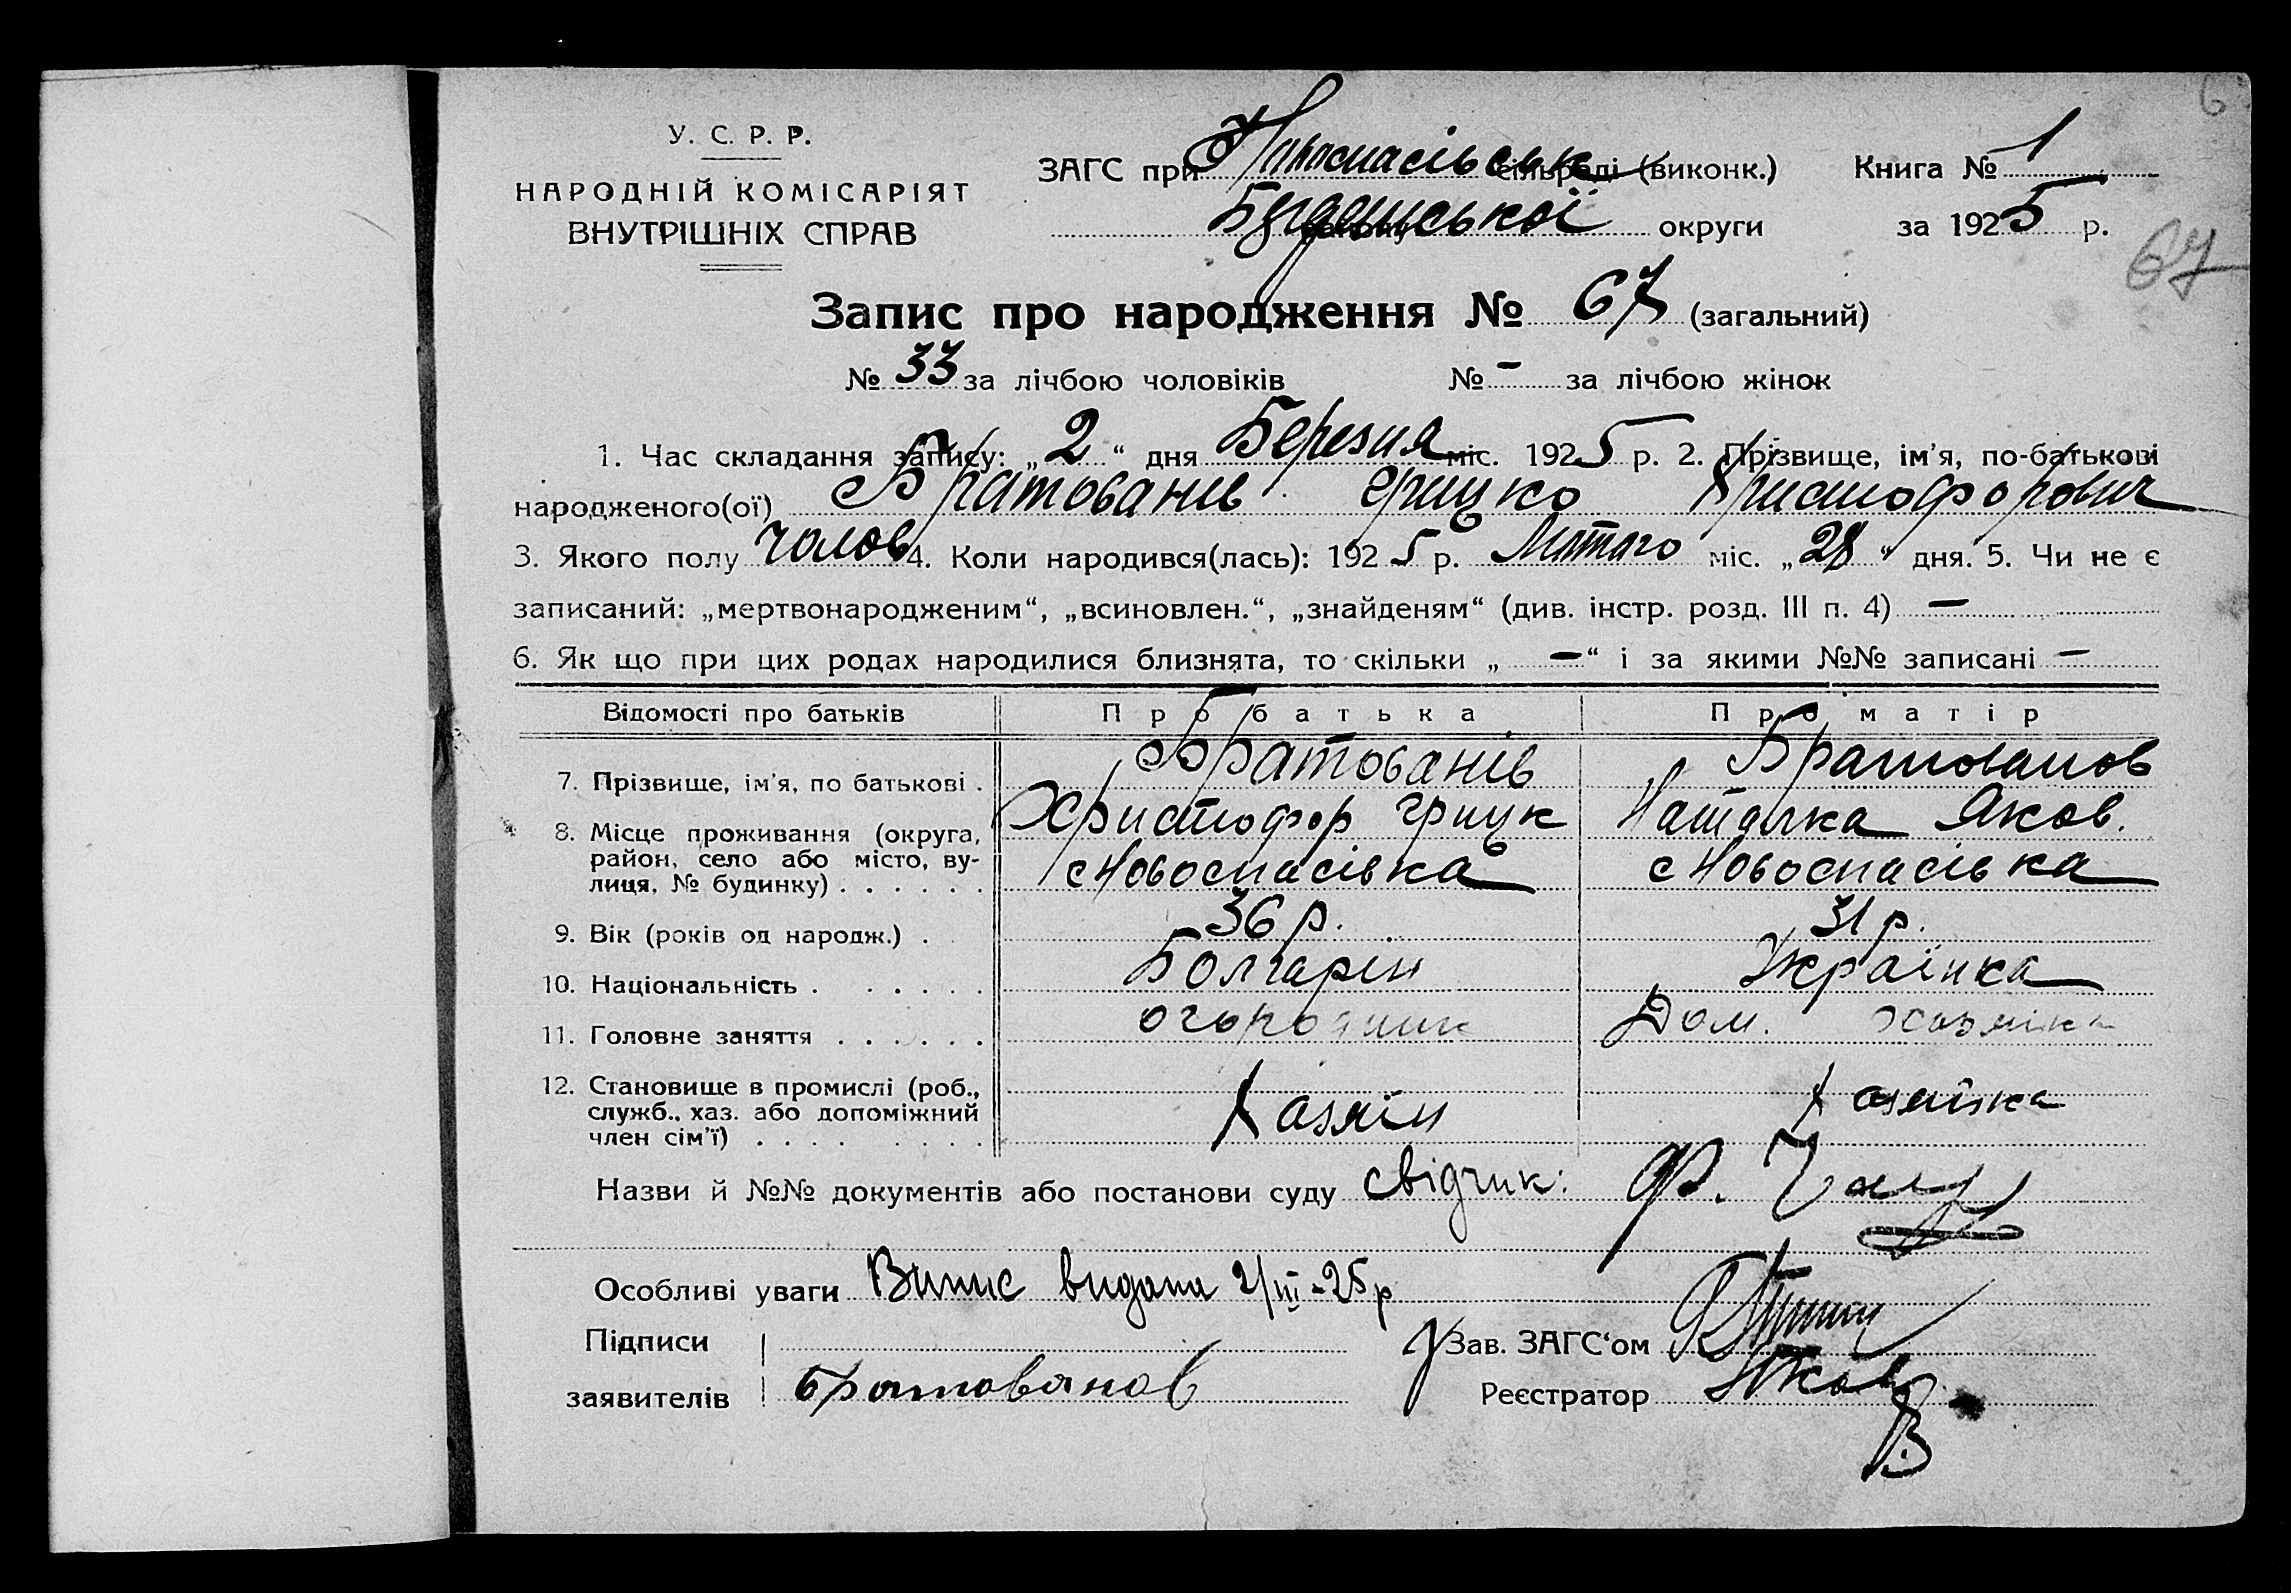 6
У. С. Р. Р.
НАРОДНІЙ КОМІСАРІЯТ
ВНУТРІШНІХ СПРАВ
ЗАГС при Новоспасівськ сільраді (виконк.) Книга № 1
округи за 1925 р.
67
Запис про народження № 67 (загальний)
№ 33 за лічбою чоловіків № – за лічбою жінок
1. Час складання запису: „2“ дня Березня міс. 1925 р. 2. Прізвище, ім'я, по-батькові
народженого(ої) Братованів Грицко Христофорович
3. Якого полу чолов 4. Коли народився(лась): 1925 р. Лютого міс. „28“ дня. 5. Чи не є
записаний: „мертвонародженим“, „всиновлен.“, „знайденям“ (див. інстр. розд. III п. 4) –
6. Як що при цих родах народилися близнята, то скільки „ – “ і за якими №№ записані –
Відомості про батьків Про батька Про матір
7. Прізвище, ім'я, по батькові . Братованів Братованов
Христофор Грицк Наталка Яков.
8. Місце проживання (округа,
район, село або місто, ву-
лиця, № будинку) . . . . . . с Новоспасівка с Новоспасівка
9. Вік (років од народж.) . 36 р. 31 р.
10. Національність . . . . . . Болгарін Українка
11. Головне заняття . . . . . . огородник Дом. хозяйка
12. Становище в промислі (роб.,
служб., хаз. або допоміжний
член сім'ї) . . . . . . . . Хазяїн Хазяїнка
Назви й №№ документів або постанови суду свідчик: Ф.
Особливі уваги Випис видана 2/III-25 р
Підписи
заявителів Братованов
Зав. ЗАГС'ом
Реєстратор